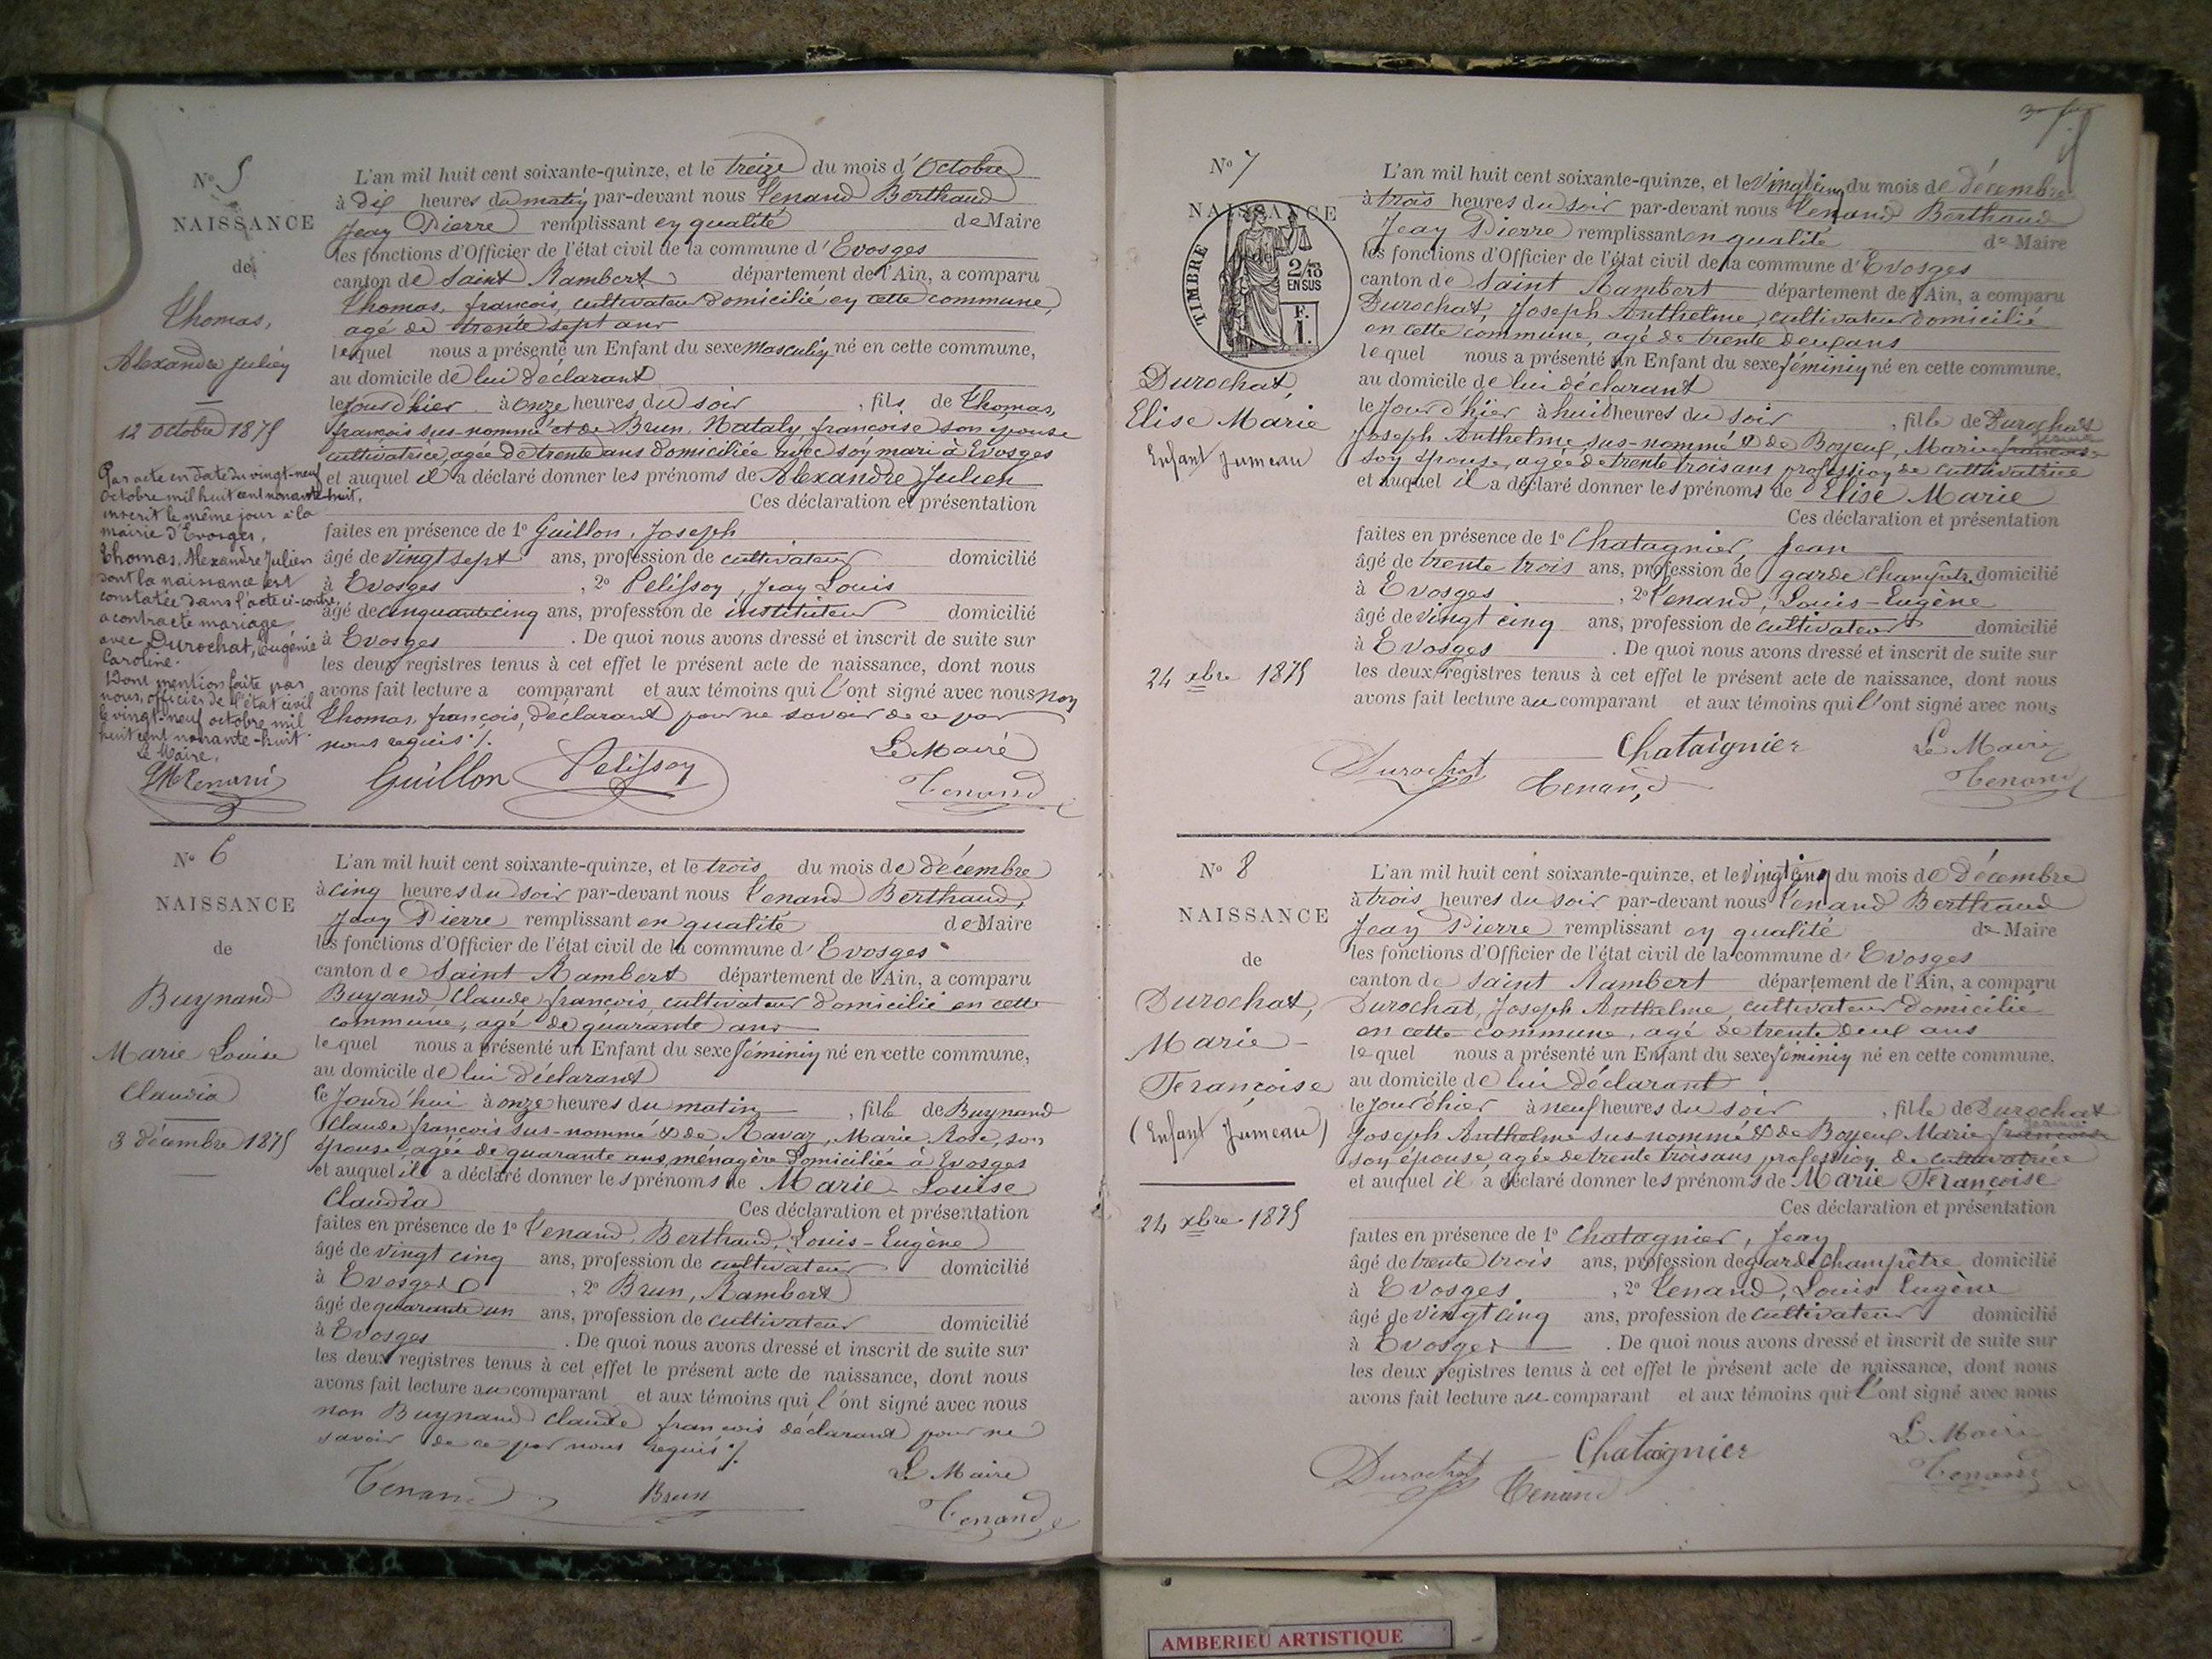 N° 5
NAISSANCE
de
Thomas,
Alexandre Julien
12 octobre 1875
Par acte en date du vingt-neuf
octobre mil huit cent nonante-huit,
inscrit le même jour à la
mairie d'Evosges,
Thomas, Alexandre Julien
dont la naissance est
constatée dans l'acte ci-contre
a contracté mariage
avec Durochat, Eugénie
Caroline.
Dont mention faite par
nous, officier de l'état civil
le vingt-neuf octobre mil
huit cent nonante-huit.
Le Maire,
L'an mil huit cent soixante-quinze, et le treize du mois d'Octobre
à dix heures du matin par-devant nous Tenand Berthaud
Jean Pierre remplissant en qualité de Maire
les fonctions d'Officier de l'état civil de la commune d'Evosges
canton de Saint Rambert département de l'Ain, a comparu
Thomas, françois, cultivateur domicilié en cette commune,
agé de trente sept ans
lequel nous a présenté un Enfant du sexe masculin né en cette commune,
au domicile de lui déclarant
le jour d'hier à onze heures du soir, fils de Thomas,
françois sus-nommé et de Brun, Nataly, françoise son épouse
cultivatrice, agée de trente ans domiciliée avec son mari à Evosges
et auquel il a déclaré donner les prénoms de Alexandre Julien
Ces déclaration et présentation
faites en présence de 1° Guillon, Joseph
âgé de vingt sept ans, profession de cultivateur domicilié
à Evosges, 2° Pelisson, Jean Louis
âgé de cinquante cinq ans, profession de instituteur domicilié
à Evosges. De quoi nous avons dressé et inscrit de suite sur
les deux registres tenus à cet effet le présent acte de naissance, dont nous
avons fait lecture a comparant et aux témoins qui l'ont signé avec nous non
Thomas, françois, déclarant pour ne savoir de ce par
nous requis ./.
Le Maire
Guillon Pelisson Tenand
N° 6
NAISSANCE
de
Buynand
Marie Louise
Claudia
3 décembre 1875
L'an mil huit cent soixante-quinze, et le trois du mois de décembre
à cinq heures du soir par-devant nous Tenand Berthaud,
Jean Pierre remplissant en qualité de Maire
les fonctions d'Officier de l'état civil de la commune d'Evosges
canton de Saint Rambert département de l'Ain, a comparu
Buyand Claude françois, cultivateur domicilié en cette
commune, agé de quarante ans
lequel nous a présenté un Enfant du sexe féminin né en cette commune,
au domicile de lui déclarant
le jourd'hui à onze heures du matin, fille de Buynand
Claude françois sus-nommé & de Ravaz, Marie Rose, son
épouse, agée de quarante ans, ménagère domiciliée à Evosges
et auquel il a déclaré donner les prénoms de Marie Louise
Claudia Ces déclaration et présentation
faites en présence de 1° Tenand, Berthaud, Louis-Eugène
âgé de vingt cinq ans, profession de cultivateur domicilié
à Evosges, 2° Brun, Rambert
âgé de quarante un ans, profession de cultivateur domicilié
à Evosges. De quoi nous avons dressé et inscrit de suite sur
les deux registres tenus à cet effet le présent acte de naissance, dont nous
avons fait lecture au comparant et aux témoins qui l'ont signé avec nous
non Buynand Claude françois déclarant pour ne
savoir de ce par nous requis ./.
Le Maire
Tenand Brun Tenand
N° 7
NAISSANCE
TIMBRE
2/10
EN SUS
F.
1.
Durochat,
Elise Marie
Enfant Jumeau
24 xbre 1875
L'an mil huit cent soixante-quinze, et le vingt cinq du mois de décembre
à trois heures du soir par-devant nous Tenand Berthaud
Jean Pierre remplissant en qualité de Maire
les fonctions d'Officier de l'état civil de la commune d'Evosges
canton de Saint Rambert département de l'Ain, a comparu
Durochat, Joseph Anthelme, cultivateur domicilié
en cette commune, agé de trente deux ans
lequel nous a présenté un Enfant du sexe féminin né en cette commune,
au domicile de lui déclarant
le jour d'hier à huit heures du soir, fille de Durochat
Joseph Anthelme sus-nommé & de Boyeux, Marie françoise
son épouse, agée de trente trois ans profession de cultivatrice
et auquel il a déclaré donner les prénoms de Elise Marie
Ces déclaration et présentation
faites en présence de 1° Chatagnier, Jean
âgé de trente trois ans, profession de garde champêtre domicilié
à Evosges, 2° Tenand, Louis-Eugène
âgé de vingt cinq ans, profession de cultivateur domicilié
à Evosges. De quoi nous avons dressé et inscrit de suite sur
les deux registres tenus à cet effet le présent acte de naissance, dont nous
avons fait lecture au comparant et aux témoins qui l'ont signé avec nous
Durochat Chataignier Le Maire
Tenand Tenand
N° 8
NAISSANCE
de
Durochat,
Marie
Françoise
(Enfant Jumeau)
24 xbre 1875
L'an mil huit cent soixante-quinze, et le vingt cinq du mois de Décembre
à trois heures du soir par-devant nous Tenand Berthaud
Jean Pierre remplissant en qualité de Maire
les fonctions d'Officier de l'état civil de la commune d'Evosges
canton de Saint Rambert département de l'Ain, a comparu
Durochat, Joseph Anthelme, cultivateur domicilié
en cette commune, agé de trente deux ans
lequel nous a présenté un Enfant du sexe féminin né en cette commune,
au domicile de lui déclarant
le jour d'hier à neuf heures du soir, fille de Durochat
Joseph Anthelme sus-nommé & de Boyeux Marie françoise
son épouse, agée de trente trois ans profession de cultivatrice
et auquel il a déclaré donner les prénoms de Marie Françoise
Ces déclaration et présentation
faites en présence de 1° Chatagnier, Jean
âgé de trente trois ans, profession de garde champêtre domicilié
à Evosges, 2° Tenand, Louis Eugène
âgé de vingt cinq ans, profession de cultivateur domicilié
à Evosges. De quoi nous avons dressé et inscrit de suite sur
les deux registres tenus à cet effet le présent acte de naissance, dont nous
avons fait lecture au comparant et aux témoins qui l'ont signé avec nous
Durochat Chataignier Le Maire
Tenand Tenand
AMBERIEU ARTISTIQUE